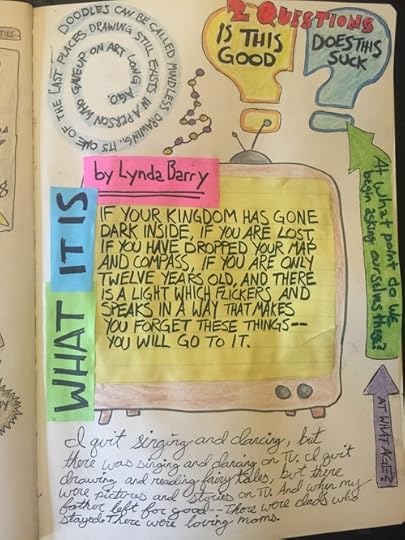 DOODLES CAN BE CALLED MINDLESS DRAWING. IT'S ONE OF THE LAST PLACES DRAWING STILL EXISTS IN A PERSON WHO GAVE UP ON ART LONG AGO.
2 QUESTIONS
IS THIS
GOOD
DOES THIS
SUCK
At what point do we
begin asking ourselves these?
AT WHAT AGE?
WHAT IT IS
by Lynda Barry
IF YOUR KINGDOM HAS GONE
DARK INSIDE, IF YOU ARE LOST,
IF YOU HAVE DROPPED YOUR MAP
AND COMPASS, IF YOU ARE ONLY
TWELVE YEARS OLD, AND THERE
IS A LIGHT WHICH FLICKERS AND
SPEAKS IN A WAY THAT MAKES
YOU FORGET THESE THINGS--
YOU WILL GO TO IT.
I quit singing and dancing, but
there was singing and dancing on TV. I quit
drawing and reading fairy tales, but there
were pictures and stories on TV. And when my
father left for good--There were dads who
stayed. There were loving moms.